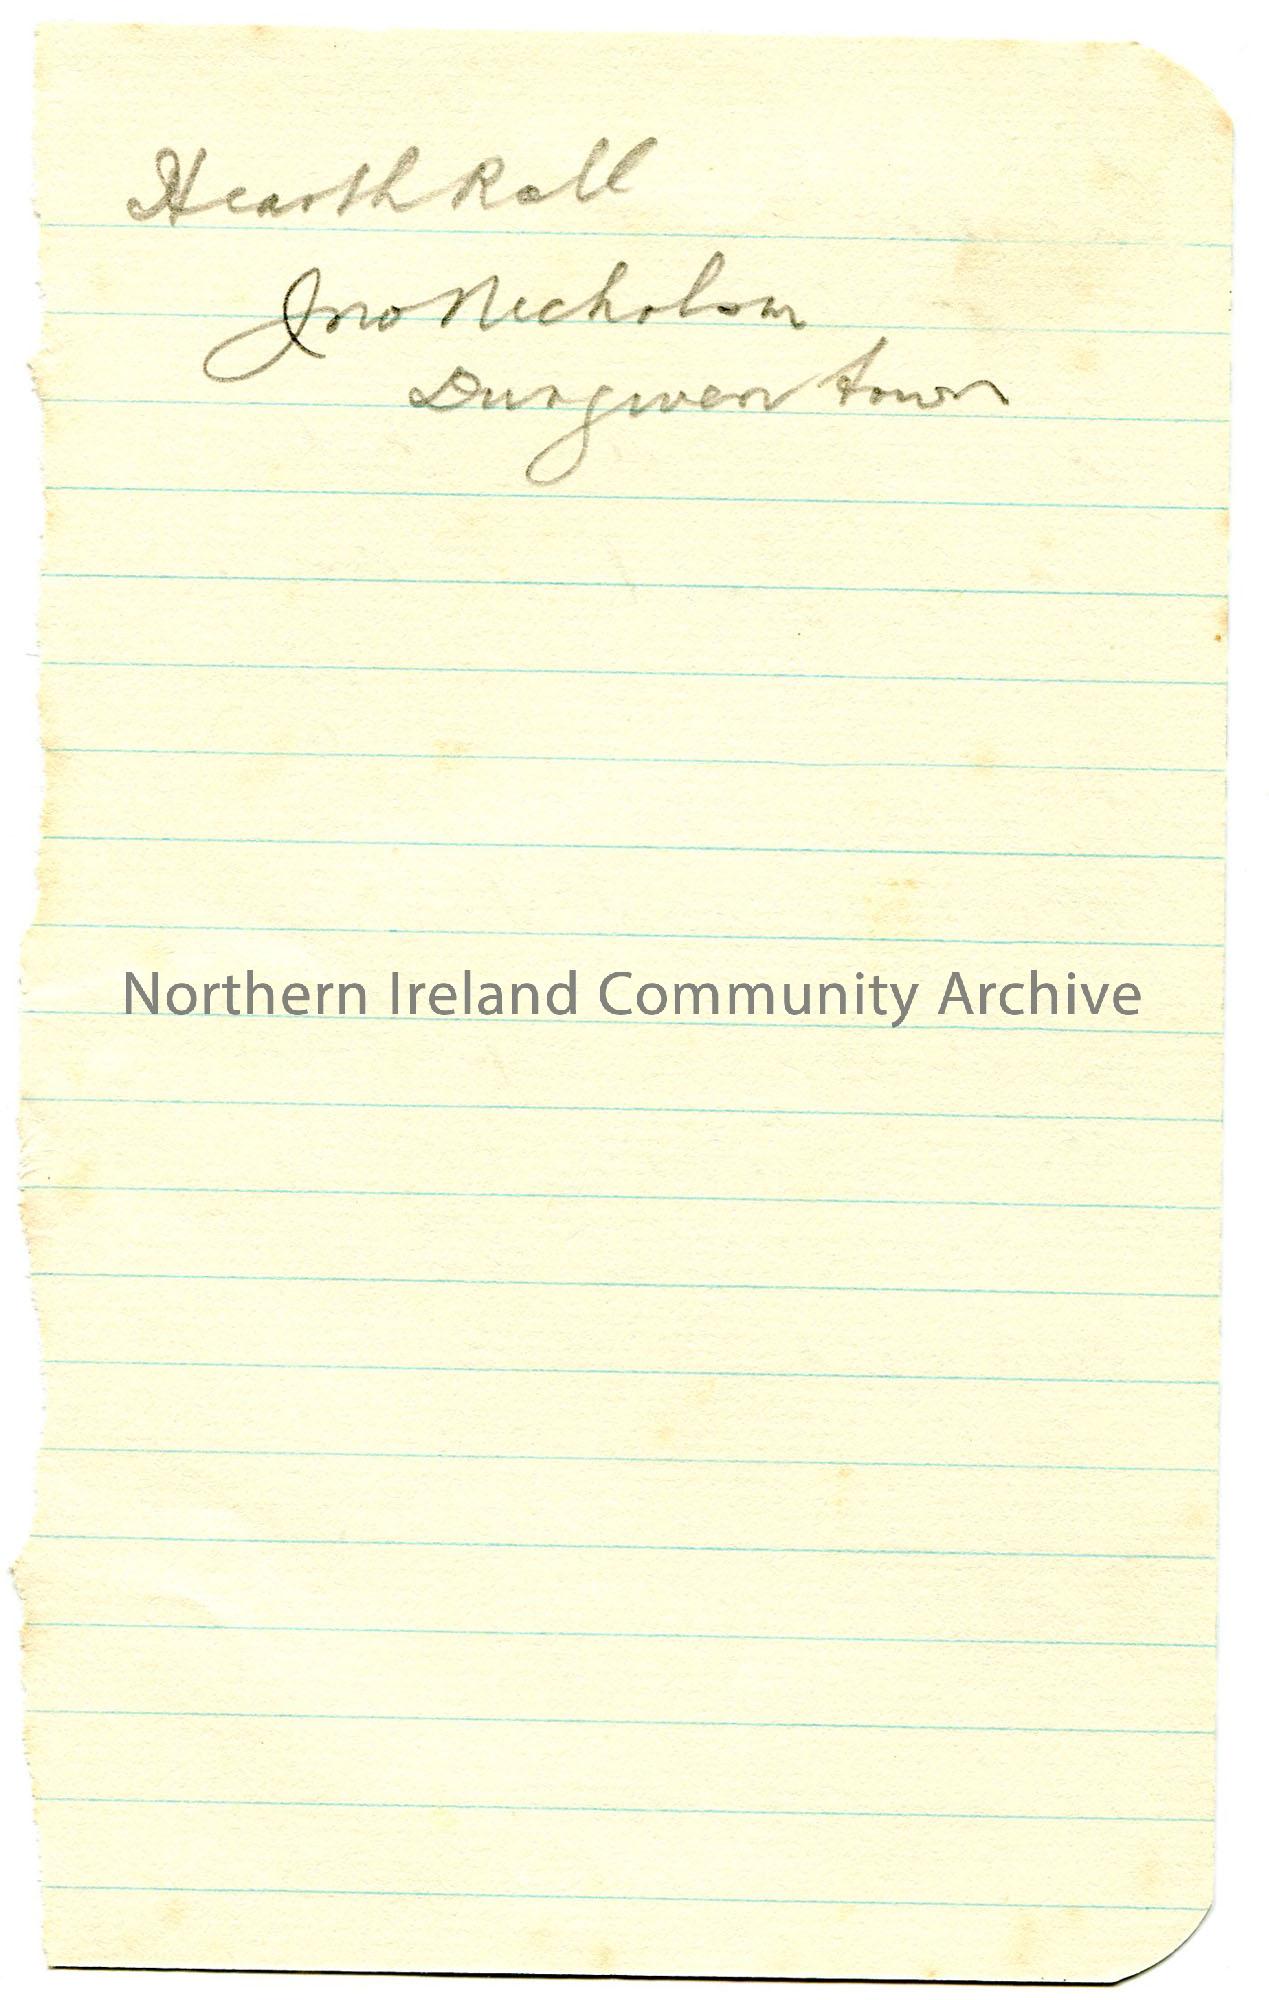 Hearth Roll
Jno Nicholson
Dungiven town
Northern Ireland Community Archive